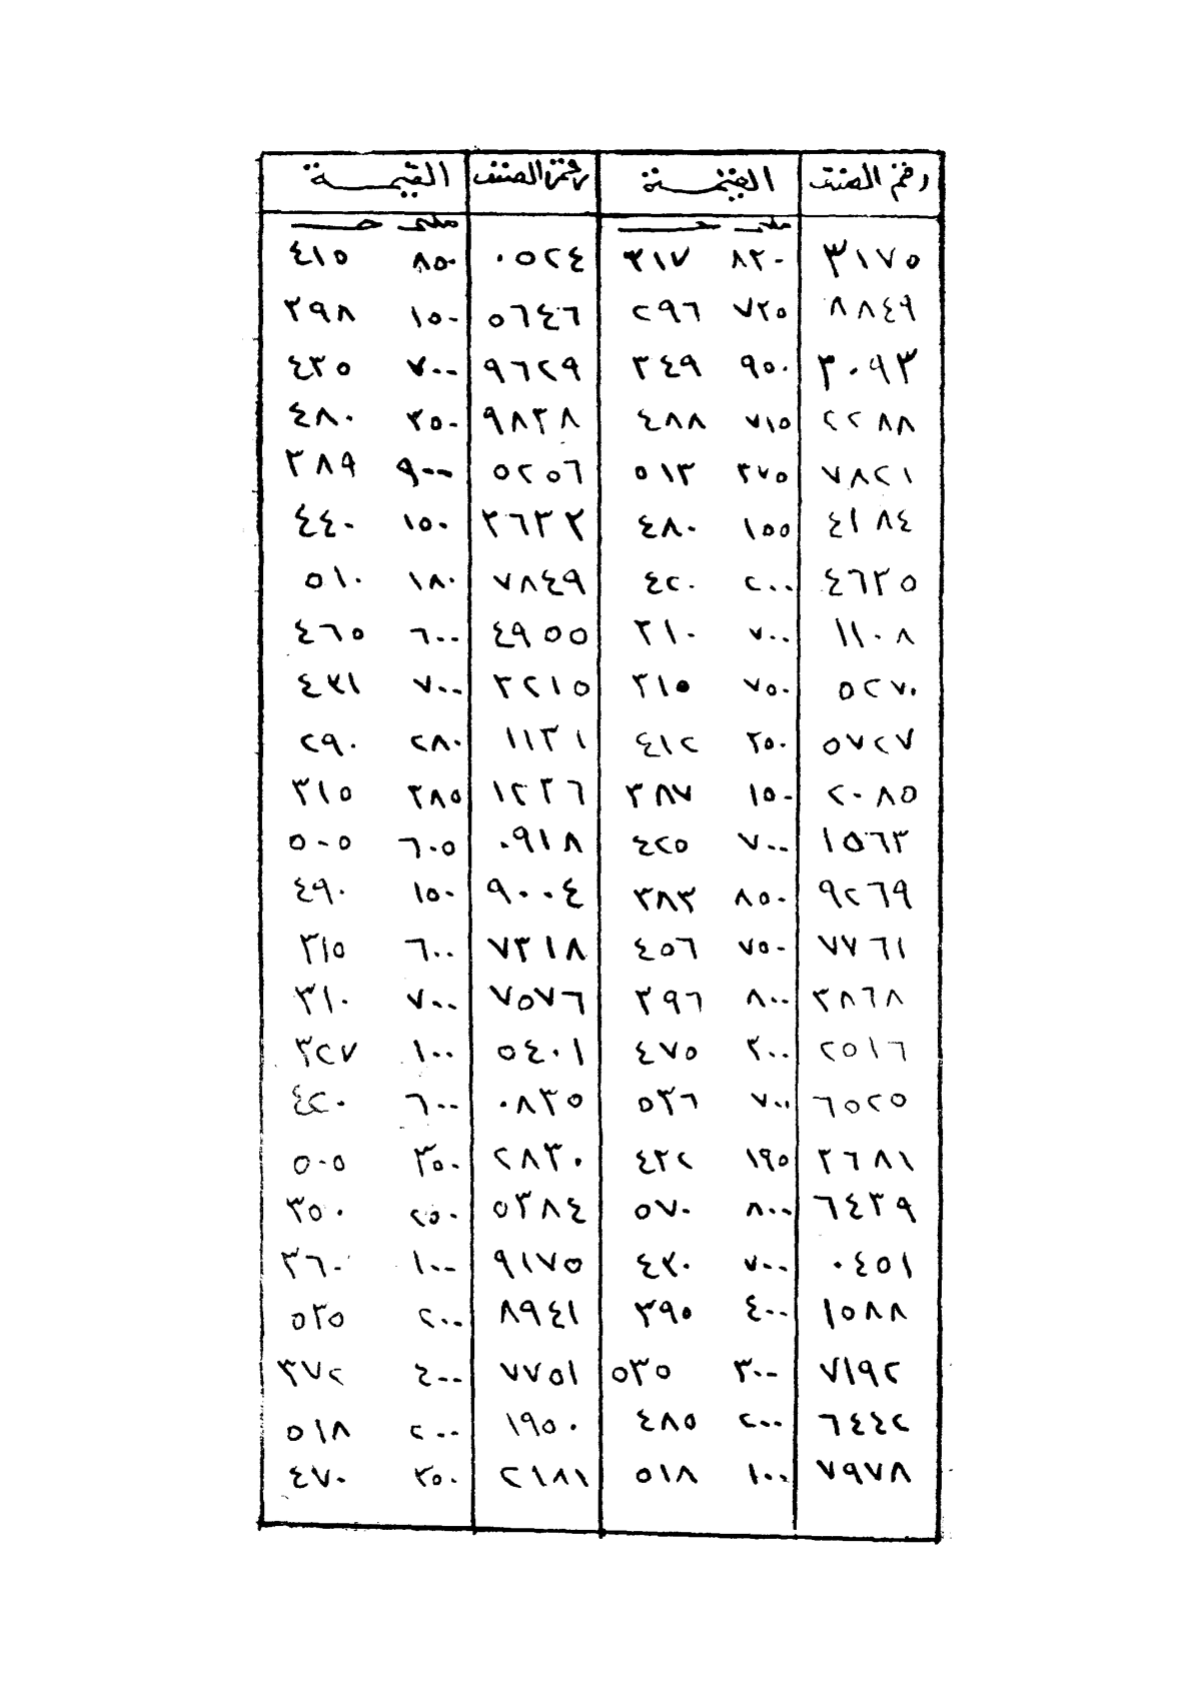 رقم الصنف القيمة رقم الصنف القيمة
ملي جـ ملي جـ
٣١٧٥ ٨٣٠ ٣١٧ ٠٥٢٤ ٨٥٠ ٤١٥
٨٨٤٩ ٧٣٥ ٢٩٦ ٥٦٤٦ ١٥٠ ٣٩٨
٣٠٩٣ ٩٥٠ ٣٤٩ ٩٦٢٩ ٧٠٠ ٤٣٥
٢٢٨٨ ٧١٥ ٤٨٨ ٩٨٣٨ ٣٥٠ ٤٨٠
٧٨٢١ ٣٧٥ ٥١٣ ٥٢٥٦ ٩٠٠ ٣٨٩
٤١٨٤ ١٥٥ ٤٨٠ ٣٦٣٣ ١٥٠ ٤٤٠
٤٦٣٥ ٢٠٠ ٤٢٠ ٧٨٤٩ ١٨٠ ٥١٠
١١٠٨ ٧٠٠ ٣١٠ ٤٩٥٥ ٦٠٠ ٤٦٥
٥٢٧٠ ٧٥٠ ٣١٥ ٣٢١٥ ٧٠٠ ٤٣١
٥٧٢٧ ٣٥٠ ٤١٢ ١١٣١ ٢٨٠ ٢٩٠
٢٠٨٥ ١٥٠ ٣٨٧ ١٣٣٦ ٣٨٥ ٣١٥
١٥٦٣ ٧٠٠ ٤٢٥ ٠٩١٨ ٦٠٥ ٥٠٥
٩٢٦٩ ٨٥٠ ٣٨٣ ٩٠٠٤ ١٥٠ ٤٩٠
٧٧٦١ ٧٥٠ ٤٥٦ ٧٣١٨ ٦٠٠ ٣١٥
٣٨٦٨ ٨٠٠ ٣٩٦ ٧٥٧٦ ٧٠٠ ٣١٠
٢٥١٦ ٣٠٠ ٤٧٥ ٥٤٠١ ١٠٠ ٣٢٧
٦٥٢٥ ٧٠٠ ٥٣٦ ٠٨٣٥ ٦٠٠ ٤٢٠
٣٦٨١ ١٩٥ ٤٣٢ ٢٨٣٠ ٣٥٠ ٥٠٥
٦٤٣٩ ٨٠٠ ٥٧٠ ٥٣٨٤ ٢٥٠ ٣٥٠
٠٤٥١ ٧٠٠ ٤٣٠ ٩١٧٥ ١٠٠ ٣٦٠
١٥٨٨ ٤٠٠ ٣٩٥ ٨٩٤١ ٢٠٠ ٥٣٥
٧١٩٢ ٣٠٠ ٥٣٥ ٧٧٥١ ٤٠٠ ٣٧٢
٦٤٤٢ ٢٠٠ ٤٨٥ ١٩٥٠ ٢٠٠ ٥١٨
٧٩٧٨ ١٠٠ ٥١٨ ٢١٨١ ٣٥٠ ٤٧٠